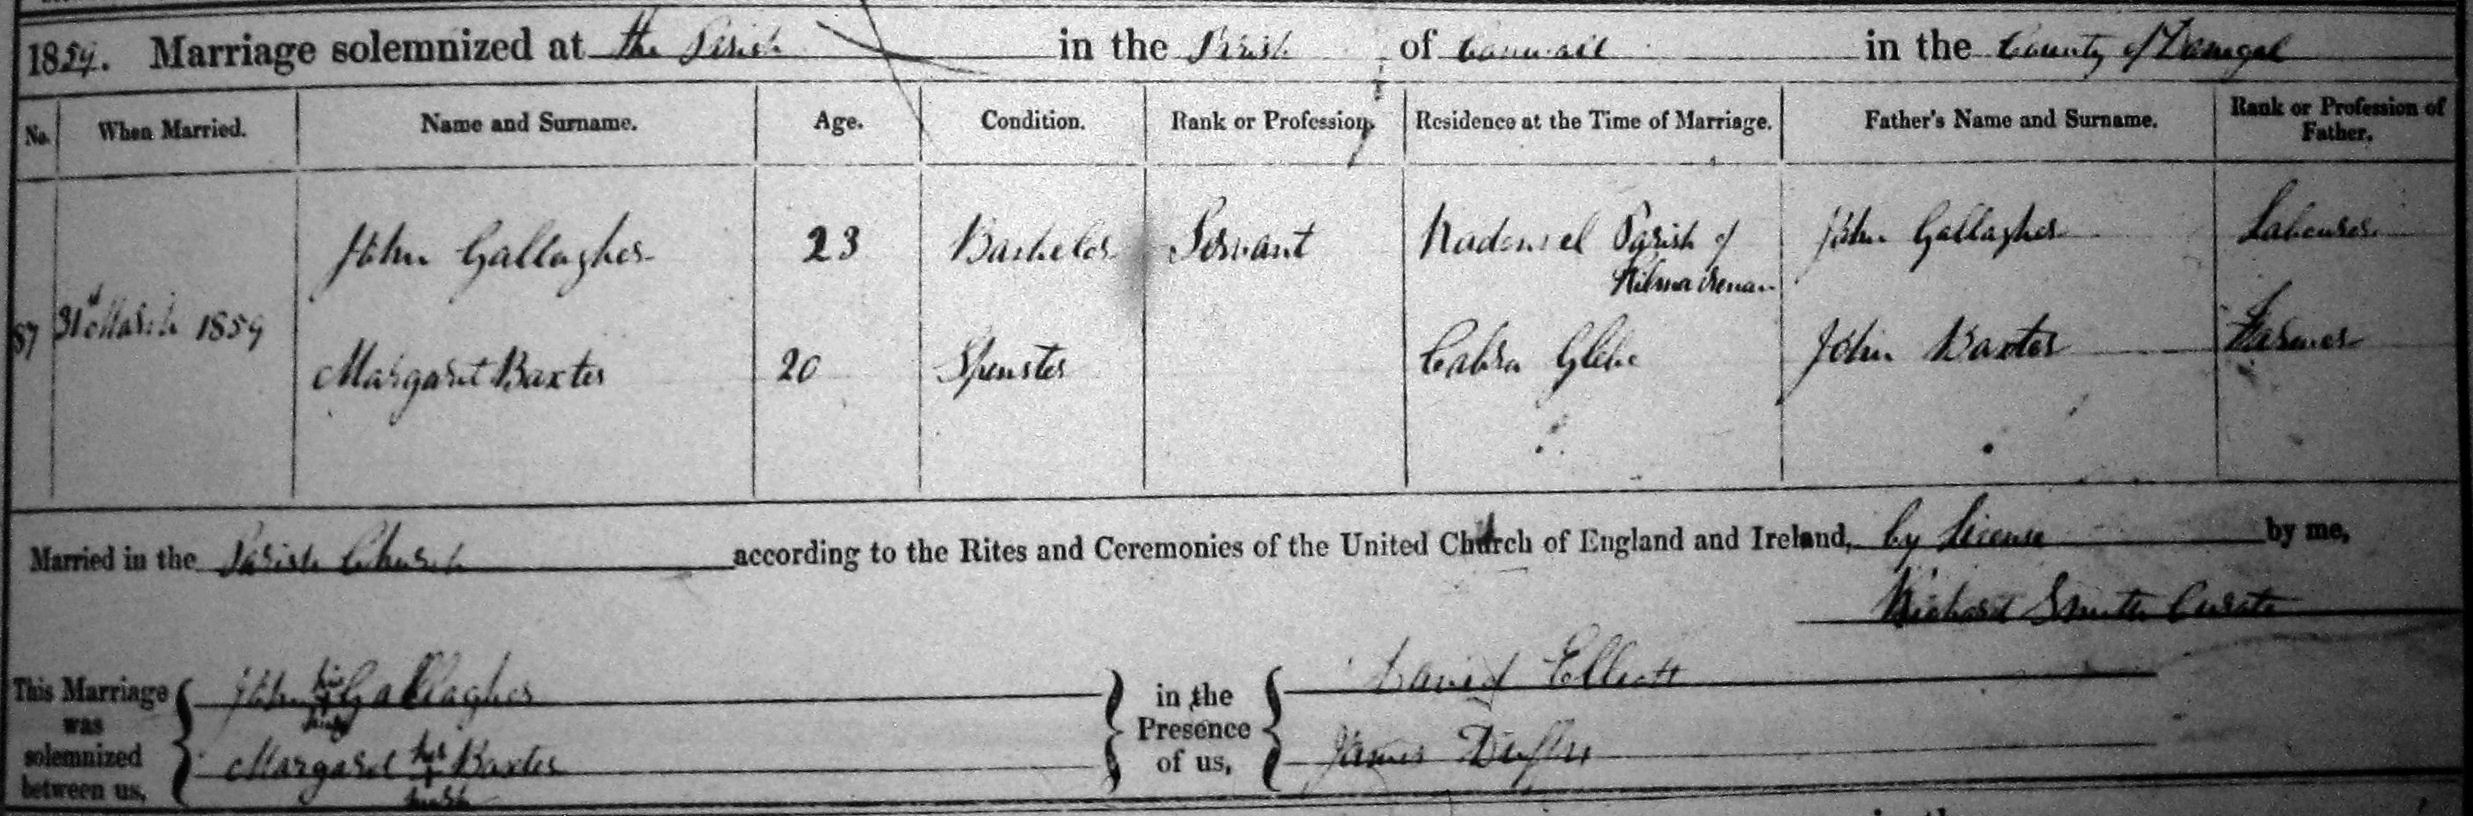 1859. Marriage solemnized at the Parish in the Parish of Conwall in the County of Donegal
No. When Married. Name and Surname. Age. Condition. Rank or Profession. Residence at the Time of Marriage. Father's Name and Surname. Rank or Profession of Father.
John Gallagher 23 Bachelor Servant Parish of John Gallagher Labourer
Kilmacrenan
87 31st March 1859
Margaret Baxter 20 Spinster Cabra Glebe John Baxter Farmer
Married in the Parish Church according to the Rites and Ceremonies of the United Church of England and Ireland, by License by me,
Richard Smith Curate
This Marriage was solemnized between us, John his + mark Gallagher
Margaret her + mark Baxter
in the Presence of us, David Elliott
James Duffy
in the